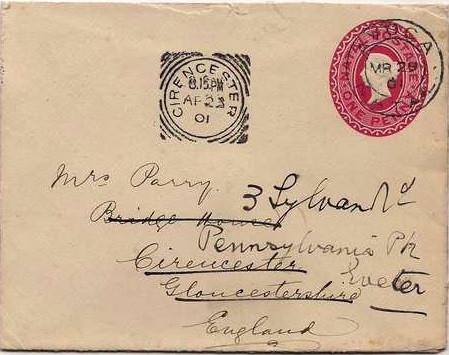 CIRENCESTER
8.15PM
AP 23
01
NATAL POSTAGE
ONE PENNY
MR 29
Mrs Parry
3 Sylvan Rd
Bridge House
Pennsylvania Pk
Cirencester
Exeter
Gloucestershire
England